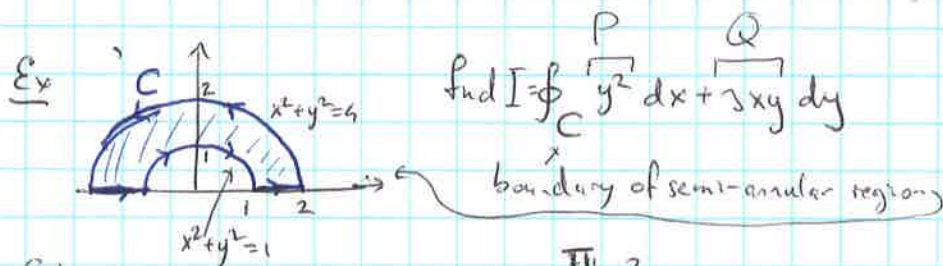 P Q
Ex
C
2
x²+y²=4
1
1 2
x²+y²=1
find I=∮ y² dx + 3xy dy
C
boundary of semi-annular region